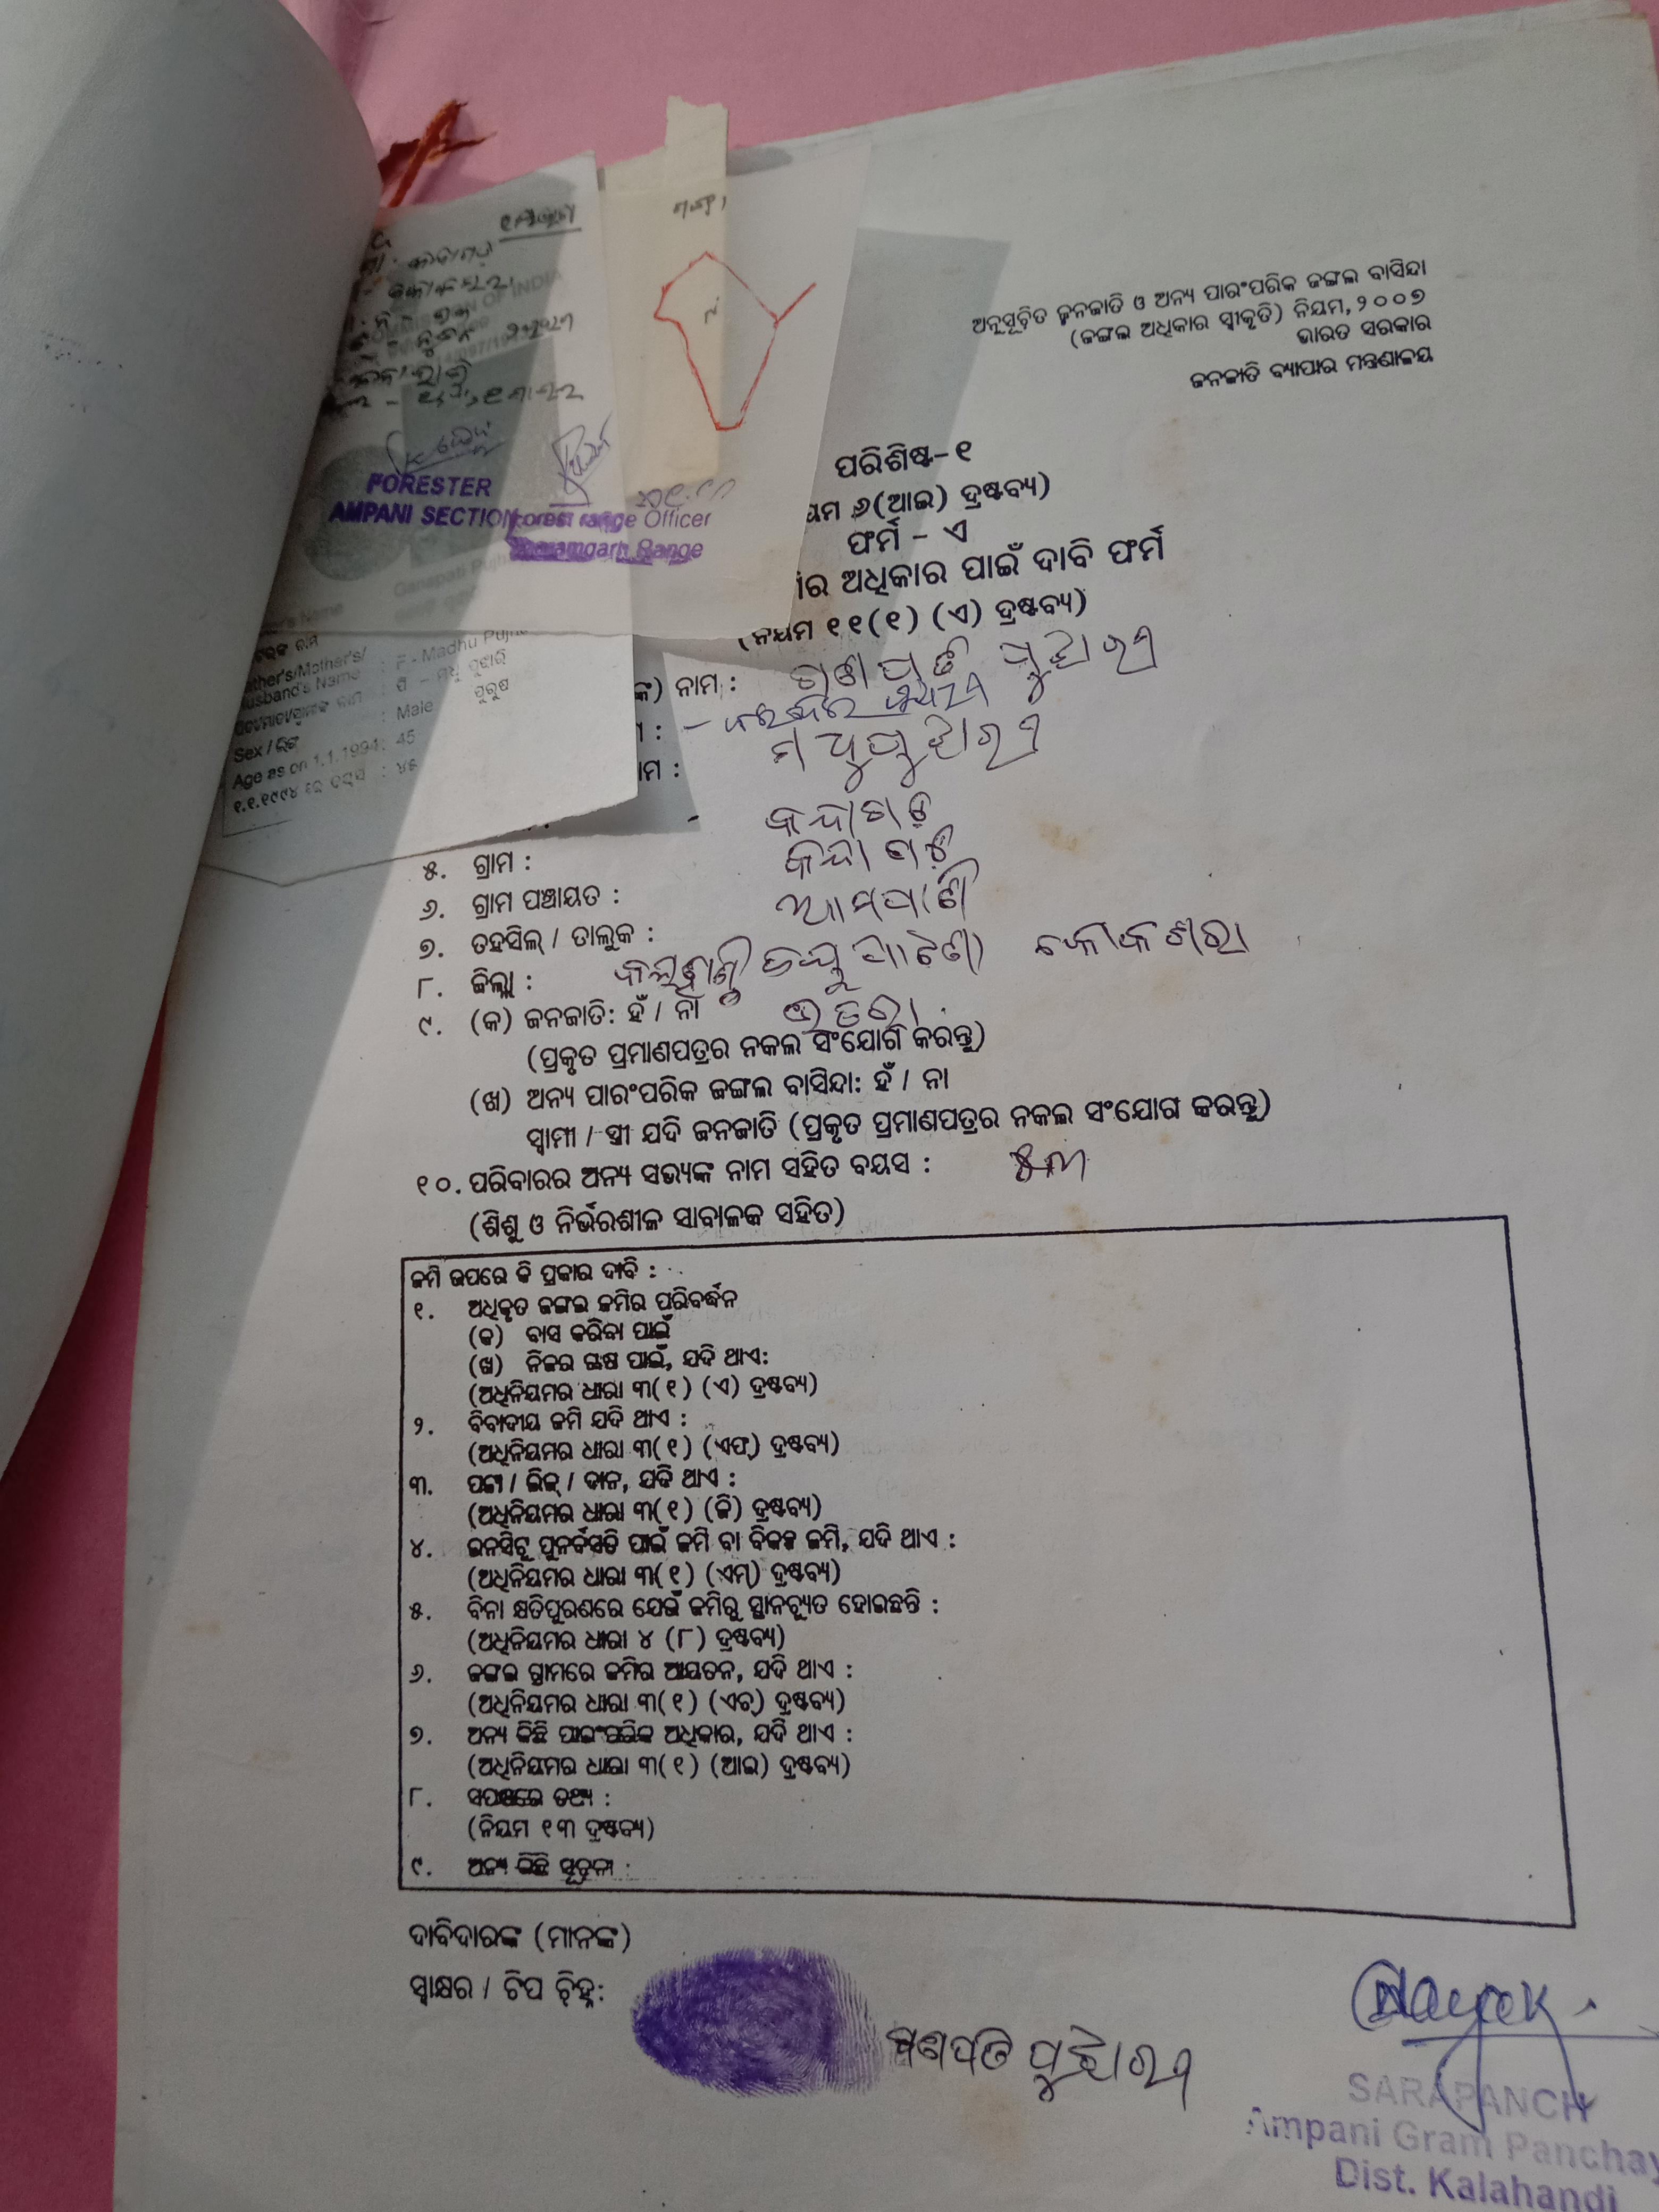 ନକ୍ସା
OF INDIA
FORESTER
AMPANI SECTION
Forest range Officer
Dharamgarh Range
Ganapati Pujh
Name
Father's/Mother's/
Husband's Name : F - Madhu Pujh
ପିତା/ମାତା/ସ୍ବାମୀଙ୍କ ନାମ : ପି - ମଧୁ ପୁଝାରି
Sex / ଲିଙ୍ଗ : Male ପୁରୁଷ
Age as on 1.1.1994 : 45
୧.୧.୧୯୯୪ ରେ ବୟସ : ୪୫
ଅନୁସୂଚିତ ଜନଜାତି ଓ ଅନ୍ୟ ପାରଂପରିକ ଜଙ୍ଗଲ ବାସିନ୍ଦା
(ଜଙ୍ଗଲ ଅଧିକାର ସ୍ୱୀକୃତି) ନିୟମ, ୨୦୦୭
ଭାରତ ସରକାର
ଜନଜାତି ବ୍ୟାପାର ମନ୍ତ୍ରଣାଳୟ
ପରିଶିଷ୍ଟ-୧
ୟମ ୬(ଆଇ) ଦ୍ରଷ୍ଟବ୍ୟ)
ଫର୍ମ - ଏ
ର ଅଧିକାର ପାଇଁ ଦାବି ଫର୍ମ
(ନିୟମ ୧୧(୧) (ଏ) ଦ୍ରଷ୍ଟବ୍ୟ)
ଙ୍କ) ନାମ : ଗଣପତି ପୁଝାରୀ
ମ : -
ନାମ : ମଧୁ ପୁଝାରୀ
କନ୍ଦାଗଡ଼
୫. ଗ୍ରାମ : କନ୍ଦାଗଡ଼
୬. ଗ୍ରାମ ପଞ୍ଚାୟତ : ଆମପାଣି
୭. ତହସିଲ୍ / ତାଲୁକ : କୋକସରା
୮. ଜିଲ୍ଲା : କଳାହାଣ୍ଡି
୯. (କ) ଜନଜାତି: ହଁ / ନା ଭତରା
(ପ୍ରକୃତ ପ୍ରମାଣପତ୍ରର ନକଲ ସଂଯୋଗ କରନ୍ତୁ)
(ଖ) ଅନ୍ୟ ପାରଂପରିକ ଜଙ୍ଗଲ ବାସିନ୍ଦା: ହଁ / ନା
ସ୍ୱାମୀ / ସ୍ତ୍ରୀ ଯଦି ଜନଜାତି (ପ୍ରକୃତ ପ୍ରମାଣପତ୍ରର ନକଲ ସଂଯୋଗ କରନ୍ତୁ)
୧୦. ପରିବାରର ଅନ୍ୟ ସଭ୍ୟଙ୍କ ନାମ ସହିତ ବୟସ :
(ଶିଶୁ ଓ ନିର୍ଭରଶୀଳ ସାବାଳକ ସହିତ)
ଜମି ଉପରେ କି ପ୍ରକାର ଦାବି :
୧. ଅଧିକୃତ ଜଙ୍ଗଲ ଜମିର ପରିବର୍ଦ୍ଧନ
(କ) ବାସ କରିବା ପାଇଁ
(ଖ) ନିଜର ଚାଷ ପାଇଁ, ଯଦି ଥାଏ:
(ଅଧିନିୟମର ଧାରା ୩(୧) (ଏ) ଦ୍ରଷ୍ଟବ୍ୟ)
୨. ବିବାଦୀୟ ଜମି ଯଦି ଥାଏ :
(ଅଧିନିୟମର ଧାରା ୩(୧) (ଏଫ୍) ଦ୍ରଷ୍ଟବ୍ୟ)
୩. ପଟ୍ଟା / ଲିଜ୍ / ଦାନ, ଯଦି ଥାଏ :
(ଅଧିନିୟମର ଧାରା ୩(୧) (ଜି) ଦ୍ରଷ୍ଟବ୍ୟ)
୪. ଇନସିଟୁ ପୁନର୍ବସତି ପାଇଁ ଜମି ବା ବିକଳ୍ପ ଜମି, ଯଦି ଥାଏ :
(ଅଧିନିୟମର ଧାରା ୩(୧) (ଏମ୍) ଦ୍ରଷ୍ଟବ୍ୟ)
୫. ବିନା କ୍ଷତିପୂରଣରେ ଯେଉଁ ଜମିରୁ ସ୍ଥାନଚ୍ୟୁତ ହୋଇଛନ୍ତି :
(ଅଧିନିୟମର ଧାରା ୪ (୮) ଦ୍ରଷ୍ଟବ୍ୟ)
୬. ଜଙ୍ଗଲ ଗ୍ରାମରେ ଜମିର ଆୟତନ, ଯଦି ଥାଏ :
(ଅଧିନିୟମର ଧାରା ୩(୧) (ଏଚ୍) ଦ୍ରଷ୍ଟବ୍ୟ)
୭. ଅନ୍ୟ କିଛି ପାରଂପରିକ ଅଧିକାର, ଯଦି ଥାଏ :
(ଅଧିନିୟମର ଧାରା ୩(୧) (ଆଇ) ଦ୍ରଷ୍ଟବ୍ୟ)
୮. ସପକ୍ଷରେ ତଥ୍ୟ :
(ନିୟମ ୧୩ ଦ୍ରଷ୍ଟବ୍ୟ)
୯. ଅନ୍ୟ କିଛି ସୂଚନା :
ଦାବିଦାରଙ୍କ (ମାନଙ୍କ)
ସ୍ୱାକ୍ଷର / ଟିପ ଚିହ୍ନ:
ଗଣପତି ପୁଝାରୀ
Nayak
SARAPANCH
Ampani Gram Panchay
Dist. Kalahandi